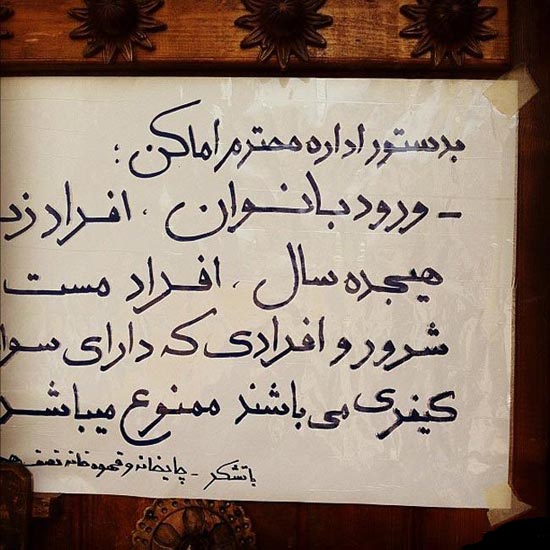 بدستور اداره محترم اماکن :
- ورود بانوان ، افراد زیر
هیجده سال ، افراد مست
شرور و افرادی که دارای سوا
کیفری می باشند ممنوع میباشد
با تشکر - چایخانه و قهوه خانه